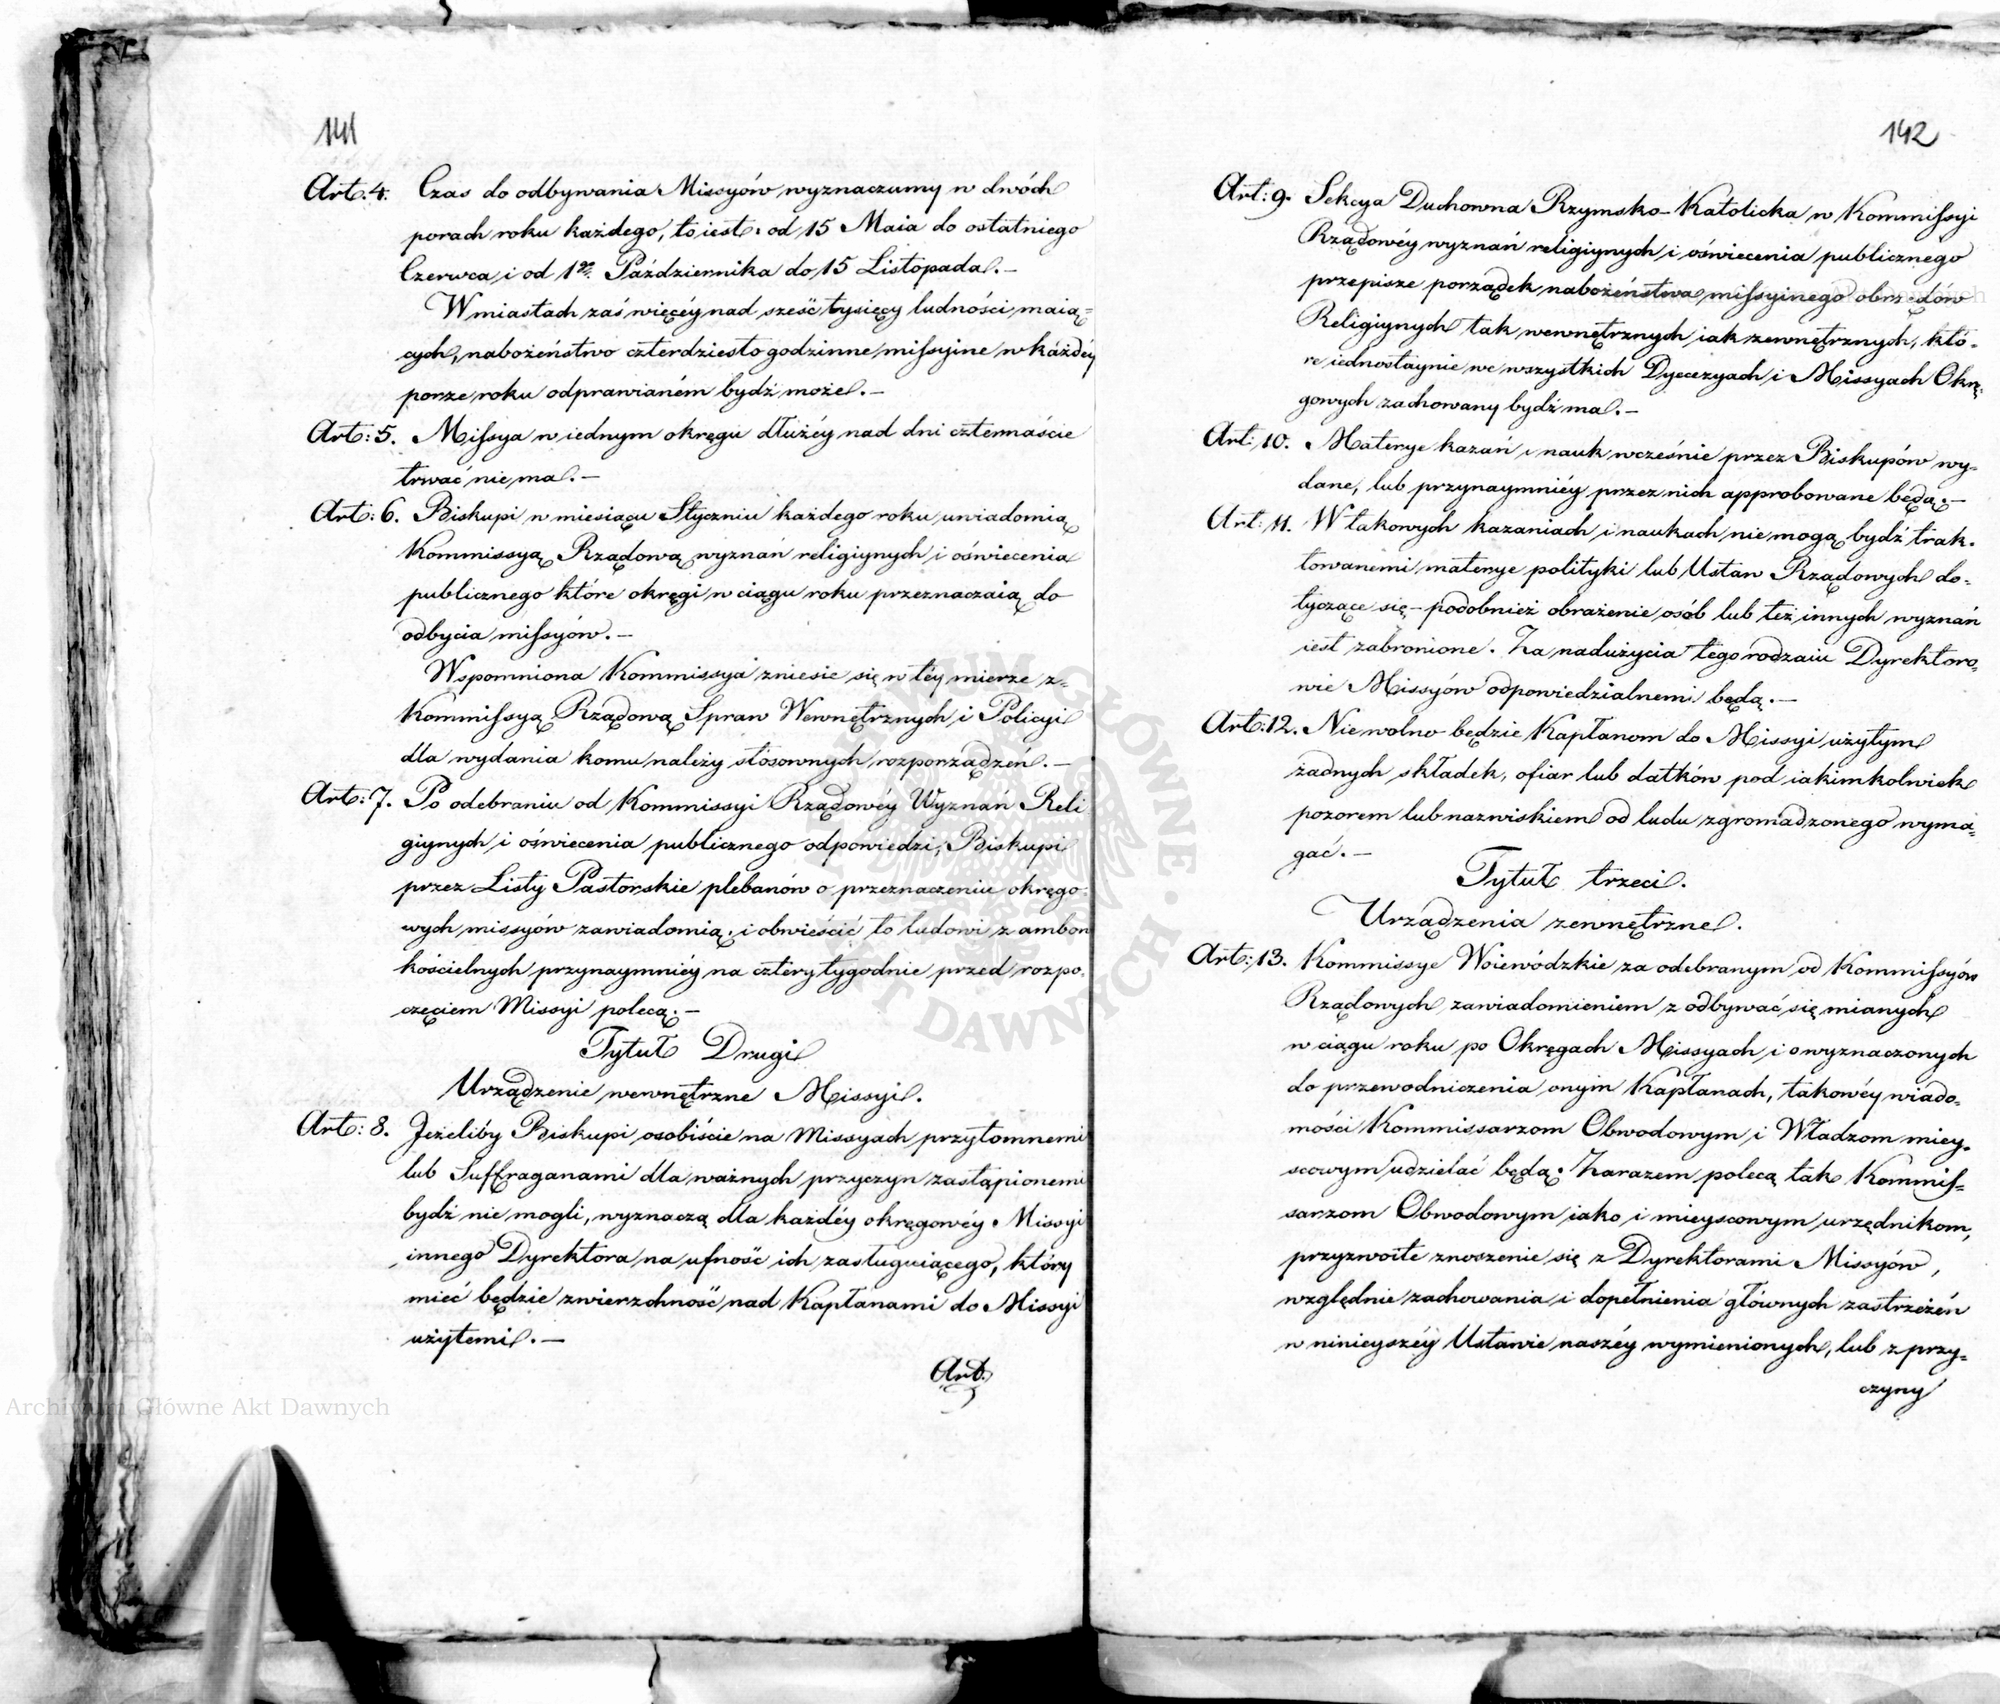 141
Art. 4. Czas do odbywania Missyów wyznaczamy w dwóch
porach roku każdego, to iest: od 15 Maia do ostatniego
Czerwca i od 1go Października do 15 Listopada.–
W miastach zaś więcéy nad sześć tysięcy ludności maią=
cych, nabożeństwo czterdziesto godzinne missyine w każdéy
porze roku odprawianém bydź może.–
Art: 5. Missya w iednym okręgu dłużéy nad dni czternaście
trwać nie ma.–
Art: 6. Biskupi w miesiącu Styczniu każdego roku uwiadomią
Kommissyą Rządową wyznań religiynych i oświecenia
publicznego które okręgi w ciągu roku przeznaczaią do
odbycia missyów.–
Wspomniona Kommissya zniesie się w téy mierze z
Kommissyą Rządową Spraw Wewnętrznych i Policyi
dla wydania komu należy stósownych rozporządzeń.–
Art: 7. Po odebraniu od Kommissyi Rządowéy Wyznań Reli
giynych i oświecenia publicznego odpowiedzi, Biskupi
przez Listy Pasterskie plebanów o przeznaczeniu okręgo
wych missyów zawiadomią, i obwieścić to ludowi z ambon
kościelnych przynaymniéy na cztery tygodnie przed rozpo.
częciem Missyi polecą.–
Tytuł Drugi
Urządzenie wewnętrzne Missyi.
Art: 8. Jeżeliby Biskupi osobiście na Missyach przytomnemi
lub Suffraganami dla ważnych przyczyn zastąpionemi
bydź nie mogli, wyznaczą dla każdéy okręgowéy Missyi
innego Dyrektora na ufność ich zasługuiącego, który
mieć będzie zwierzchność nad Kapłanami do Missyi
użytemi.–
Art.
142
Art: 9. Sekcya Duchowna Rzymsko-Katolicka w Kommissyi
Rządowéy wyznań religiynych i oświecenia publicznego
przepisze porządek nabożeństwa missyinego obrzędów
Religiynych tak wewnętrznych iak zewnętrznych, któ-
re iednostaynie we wszystkich Dyecezyach i Missyach Okrę-
gowych zachowany bydź ma.–
Art: 10. Materye kazań i nauk wcześnie przez Biskupów wy-
dane, lub przynaymniéy przez nich approbowane będą.–
Art: 11. W takowych kazaniach i naukach nie mogą bydź trak-
towanemi materye polityki lub Ustaw Rządowych do-
tyczące się – podobnież obrażenie osób lub też innych wyznań
iest zabronione. Za nadużycia tego rodzaiu Dyrektoro-
wie Missyów odpowiedzialnemi będą.–
Art: 12. Nie wolno będzie Kapłanom do Missyi użytym
żadnych składek, ofiar lub datków pod iakimkolwiek
pozorem lub nazwiskiem od ludu zgromadzonego wyma=
gać.–
Tytuł trzeci.
Urządzenia zewnętrzne.
Art: 13. Kommissye Woiewódzkie za odebranym od Kommissyów
Rządowych zawiadomieniem z odbywać się mianych
w ciągu roku po Okręgach Missyach i o wyznaczonych
do przewodniczenia onym Kapłanach, takowéy wiado-
mości Kommissarzom Obwodowym i Władzom miey-
scowym udzielać będą. Zarazem polecą tak Kommis=
sarzom Obwodowym iako i mieyscowym urzędnikom,
przyzwoite znoszenie się z Dyrektorami Missyów,
względnie zachowania i dopełnienia głównych zastrzeżeń
w ninieyszéy Ustawie naszéy wymienionych, lub z przy=
czyny
Archiwum Główne Akt Dawnych